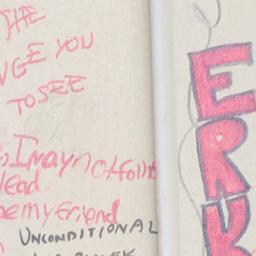 THE
NGE YOU
TO SEE
I may not follow
lead
be my friend
UNCONDITIONAL
ERV